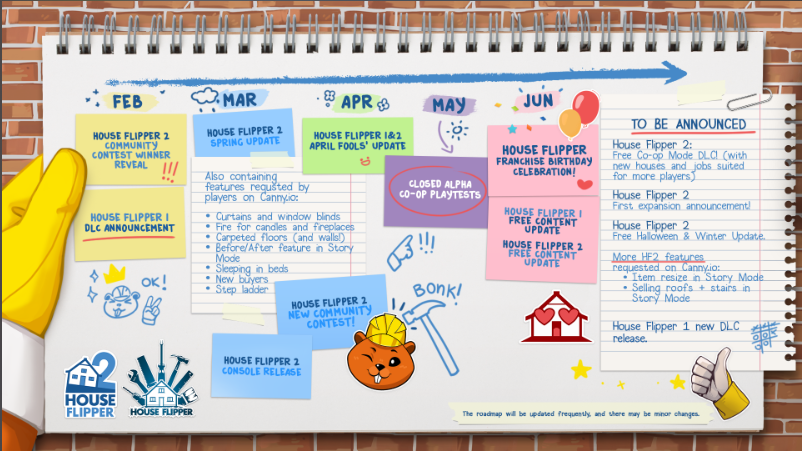 FEB
MAR
APR
MAY
JUN
HOUSE FLIPPER 2
COMMUNITY
CONTEST WINNER
REVEAL
!!!
HOUSE FLIPPER 1
DLC ANNOUNCEMENT
OK!
HOUSE FLIPPER 2
SPRING UPDATE
Also containing
features requsted by
players on Canny.io:
• Curtains and window blinds
• Fire for candles and fireplaces
• Carpeted floors (and walls!)
• Before/After feature in Story
Mode
• Sleeping in beds
• New buyers
• Step ladder
HOUSE FLIPPER 2
NEW COMMUNITY
CONTEST!
HOUSE FLIPPER 2
CONSOLE RELEASE
HOUSE FLIPPER 1&2
APRIL FOOLS' UPDATE
CLOSED ALPHA
CO-OP PLAYTESTS
!!!
BONK!
HOUSE FLIPPER
FRANCHISE BIRTHDAY
CELEBRATION!
HOUSE FLIPPER 1
FREE CONTENT
UPDATE
HOUSE FLIPPER 2
FREE CONTENT
UPDATE
TO BE ANNOUNCED
House Flipper 2:
Free Co-op Mode DLC! (with
new houses and jobs suited
for more players)
House Flipper 2
First expansion announcement!
House Flipper 2
Free Halloween & Winter Update.
More HF2 features
requested on Canny.io:
• Item resize in Story Mode
• Selling roofs + stairs in
Story Mode
House Flipper 1 new DLC
release.
2
HOUSE
FLIPPER
HOUSE FLIPPER
The roadmap will be updated frequently, and there may be minor changes.